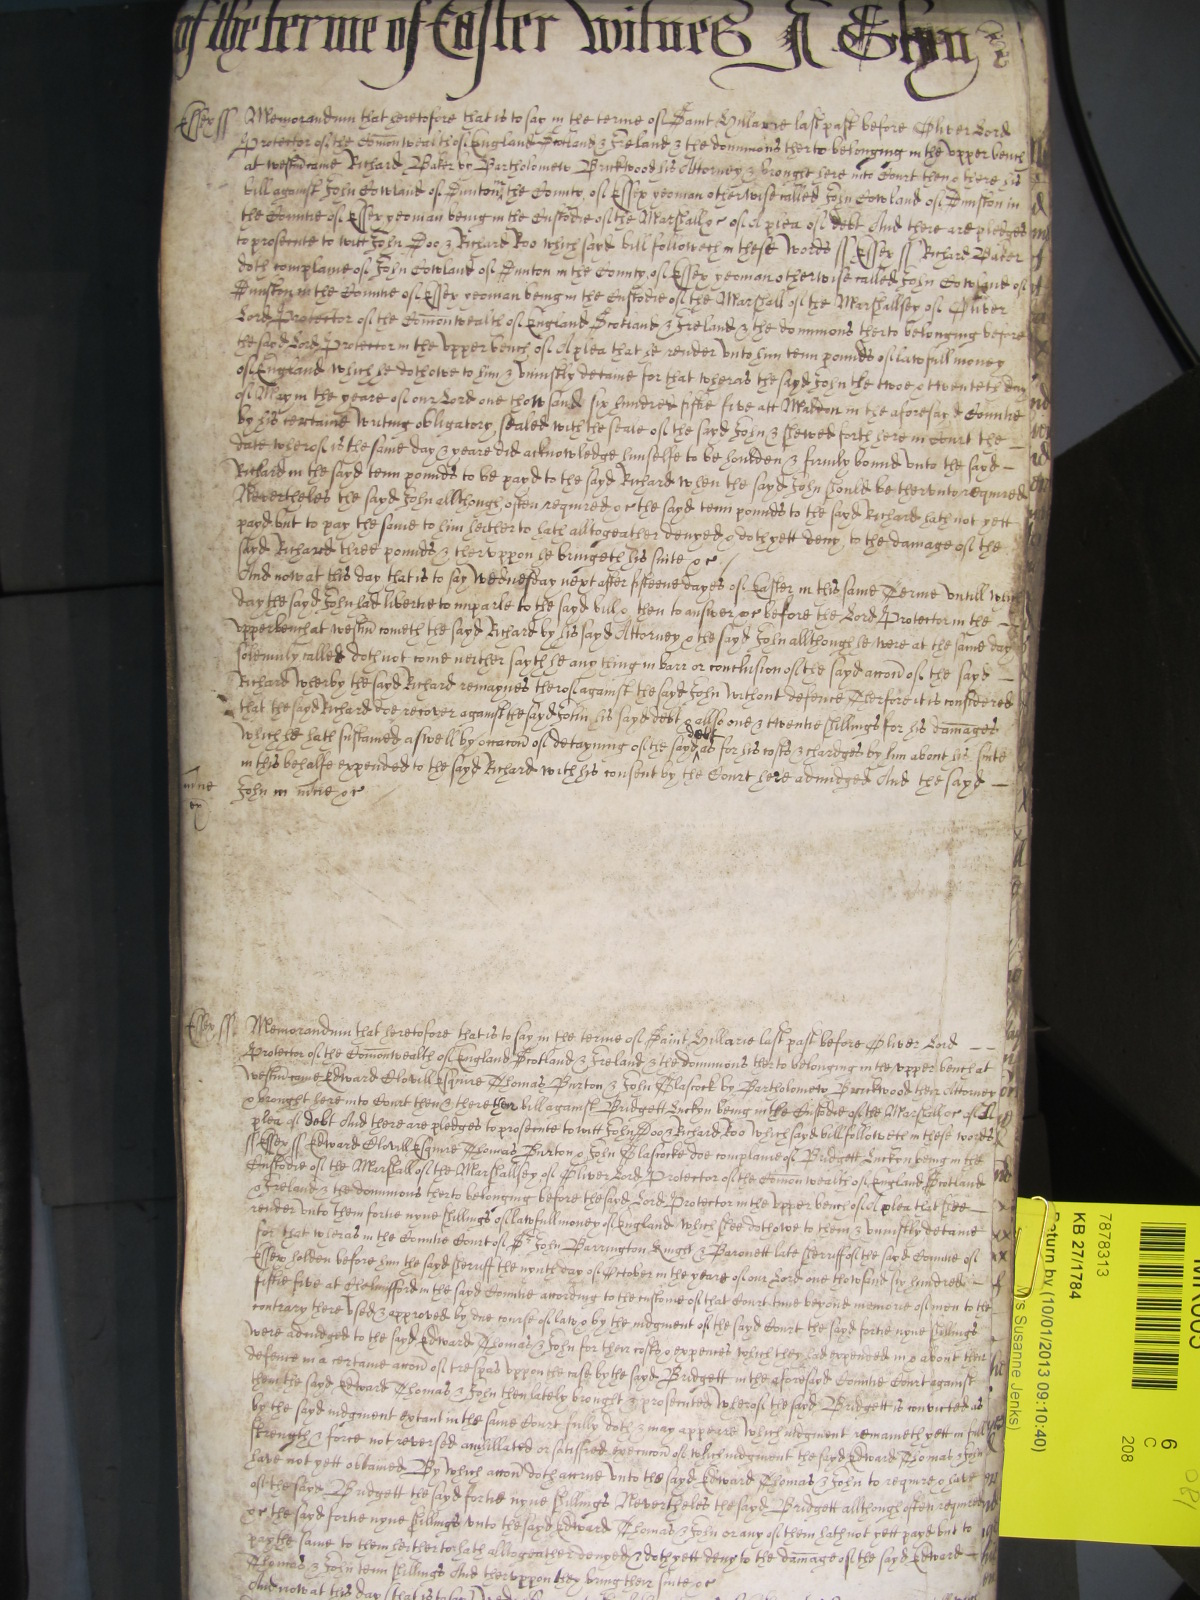 of the terme of Easter Witnes J Glyn
Essex ss Memorandum that heretofore that is to say in the terme of Saint Hillarye last past before Oliver Lord
Protector of the Comonwealth of England Scotland & Ireland & the dominions therto belonging in the upper bench
at westm came Richard Baker by Bartholomew Brickwood his Attorney & brought here into Court then & there his
bill against John Cowland of Dunton in the County of Essex yeoman otherwise called John Cowland of Dunston in
the Countie of Essex yeoman being in the Custodie of the Marshall &c of A plea of debt And there are pledges
to prosecute to witt John Doo & Richard Roo which sayd bill followeth in these words ss Essex ss Richard Baker
doth complaine of John Cowland of Dunton in the County of Essex yeoman otherwise called John Cowland of
Dunston in the Countie of Essex yeoman being in the Custodie of the Marshall of the Marshallsey of Oliver
Lord Protector of the Comonwealth of England Scotland & Ireland & the dominions therto belonging before
the sayd Lord Protector in the upper bench of A plea that he render unto him tenn pounds of lawfull money
of England which he doth owe to him & uniustly detaine for that wheras the sayd John the twoe & twenteth day
of May in the yeare of our Lord one thowsand six hundred fiftie five att Maldon in the aforesayd Countie
by his certaine writing obligatory sealed with the seale of the sayd John & shewed forth here in Court the
date wherof is the same day & yeare did acknowledge himselfe to be houlden & firmly bound unto the sayd
Richard in the sayd tenn pounds to be payd to the sayd Richard when the sayd John should be therunto required
Nevertheles the sayd John allthough often required &c the sayd tenn pounds to the sayd Richard hath not yett
payd but to pay the same to him hetherto hath alltogeather denyed & doth yett deny to the damage of the
sayd Richard three pounds & theruppon he bringeth his suite &c /
And now at this day that is to say Wednesday next after fifteene dayes of Easter in this same Terme untill which
day the sayd John had libertie to imparle to the sayd bill & then to answer &c before the Lord Protector in the
upper bench at westm cometh the sayd Richard by his sayd Attorney & the sayd John allthough he were at the same day
solemnly called doth not come neither sayth he any thing in barr or conclusion of the sayd accon of the sayd
Richard wherby the sayd Richard remaynes therof against the sayd John without defence Therfore it is considered
that the sayd Richard doe recover against the sayd John his sayd debt & allso one & twentie shillings for his damages
debt
which he hath sustained aswell by occacon of detayning of the sayd as for his costs & chardges by him about his suite
in this behalfe expended to the sayd Richard with his consent by the Court here adiudged And the sayd
John in mcie &c
Essex ss Memorandum that heretofore that is to say in the terme of Saint Hillarie last past before Oliver Lord
Protector of the Comonwealth of England Scotland & Ireland & the dominions therto belonging in the upper bench at
westm came Edward Clovill Esquire Thomas Burton & John Glascock by Bartholomew Brickwood their Attorney
& brought here into Court then & there their bill against Bridgett Luckyn being in the Custodie of the Marshall &c of A
plea of debt And there are pledges to prosecute to witt John Doo & Richard Roo which sayd bill followeth in these words
ss Essex ss Edward Clovill Esquire Thomas Burton & John Glascocke doe complaine of Bridgett Luckyn being in the
Custodie of the Marshall of the Marshallsey of Oliver Lord Protector of the Comonwealth of England Scotland
& Ireland & the dominions therto belonging before the sayd Lord Protector in the upper bench of A plea that shee
render unto them fortie nyne shillings of lawfull money of England which shee doth owe to them & uniustly detaine
for that wheras in the Countie Court of Sr John Barrington Knight & Baronett late sheriff of the sayd Countie of
Essex holden before him the sayd sheriff the nynth day of October in the yeare of our Lord one thowsand six hundred
fiftie five at Chelmsford in the sayd Countie according to the custome of that Court time beyond memorie of men to the
contrary there used & approved by due course of law & by the iudgment of the sayd Court the sayd fortie nyne shillings
were adiudged to the sayd Edward Thomas & John for their costs & expences which they had expended in & about their
defence in a certaine accon of trespas uppon the case by the sayd Bridgett in the aforesayd Countie Court against
them the sayd Edward Thomas & John then lately brought & prosecuted wherof the sayd Bridgett is convicted as
by the sayd iudgment extant in the same Court fully doth & may appeare which iudgment remaineth yett in full
strength & force not reversed annillated or satisfied execucon of which iudgment the sayd Edward Thomas & John
have not yett obtained By which accon doth accrue unto the sayd Edward Thomas & John to require & have
of the sayd Bridgett the sayd fortie nyne shillings Nevertheles the sayd Bridgett allthough often required
&c the sayd fortie nyne shillings unto the sayd Edward Thomas & John or any of them hath not yett payd but to
pay the same to them hetherto hath alltogeather denyed & doth yett deny to the damage of the sayd Edward
Thomas & John tenn shillings And theruppon they bring their suite &c
And now at this day that is to say
7878313
KB 27/1784
Return by (10/01/2013 09:10:40)
Ms Susanne Jenks)
6
C
208